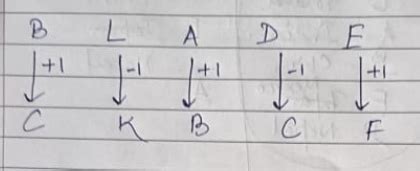 B L A D E
+1 -1 +1 -1 +1
C K B C F